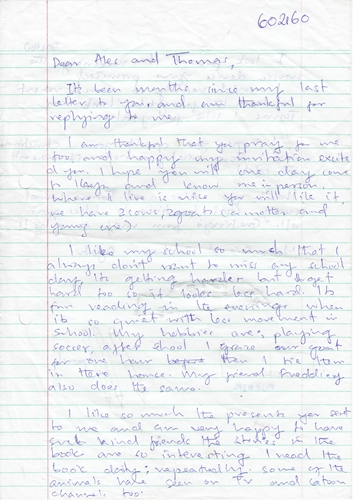 602160
Dear Alex and Thomas,
It's been months since my last
letter to you, and am thankful for
replying to me.
I am thankful that you pray for me
too, and happy my invitation excite
d you. I hope you will one day come
to and know me in person,
where I live is nice you will like it,
we have 3 cows, 2 goats (a mother and
young one).
I like my school so much that I
always don't want to miss any school
day, it's getting harder but I
hard too so it looks less hard. It's
fun reading in the evenings when
it is so quiet with less movement in
school. My hobbies are: playing
soccer, after shool I graze our goat
for one hour before then I tie them
in there house. My friend
also does the same.
I like so much the presents you sent
to me and am very happy to have
such kind friends the stories in the
book are so interesting I read the
book daily: repeatedly some of the
animals have seen on TV and
channels too.